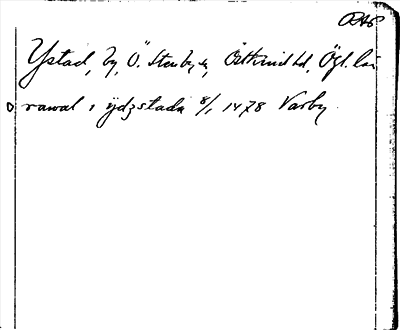 OAU
Ystad, by, Ö. Stenby sn, Östkind hd, Ögl. län
rawal i ydzstada 8/1 1478 Varby